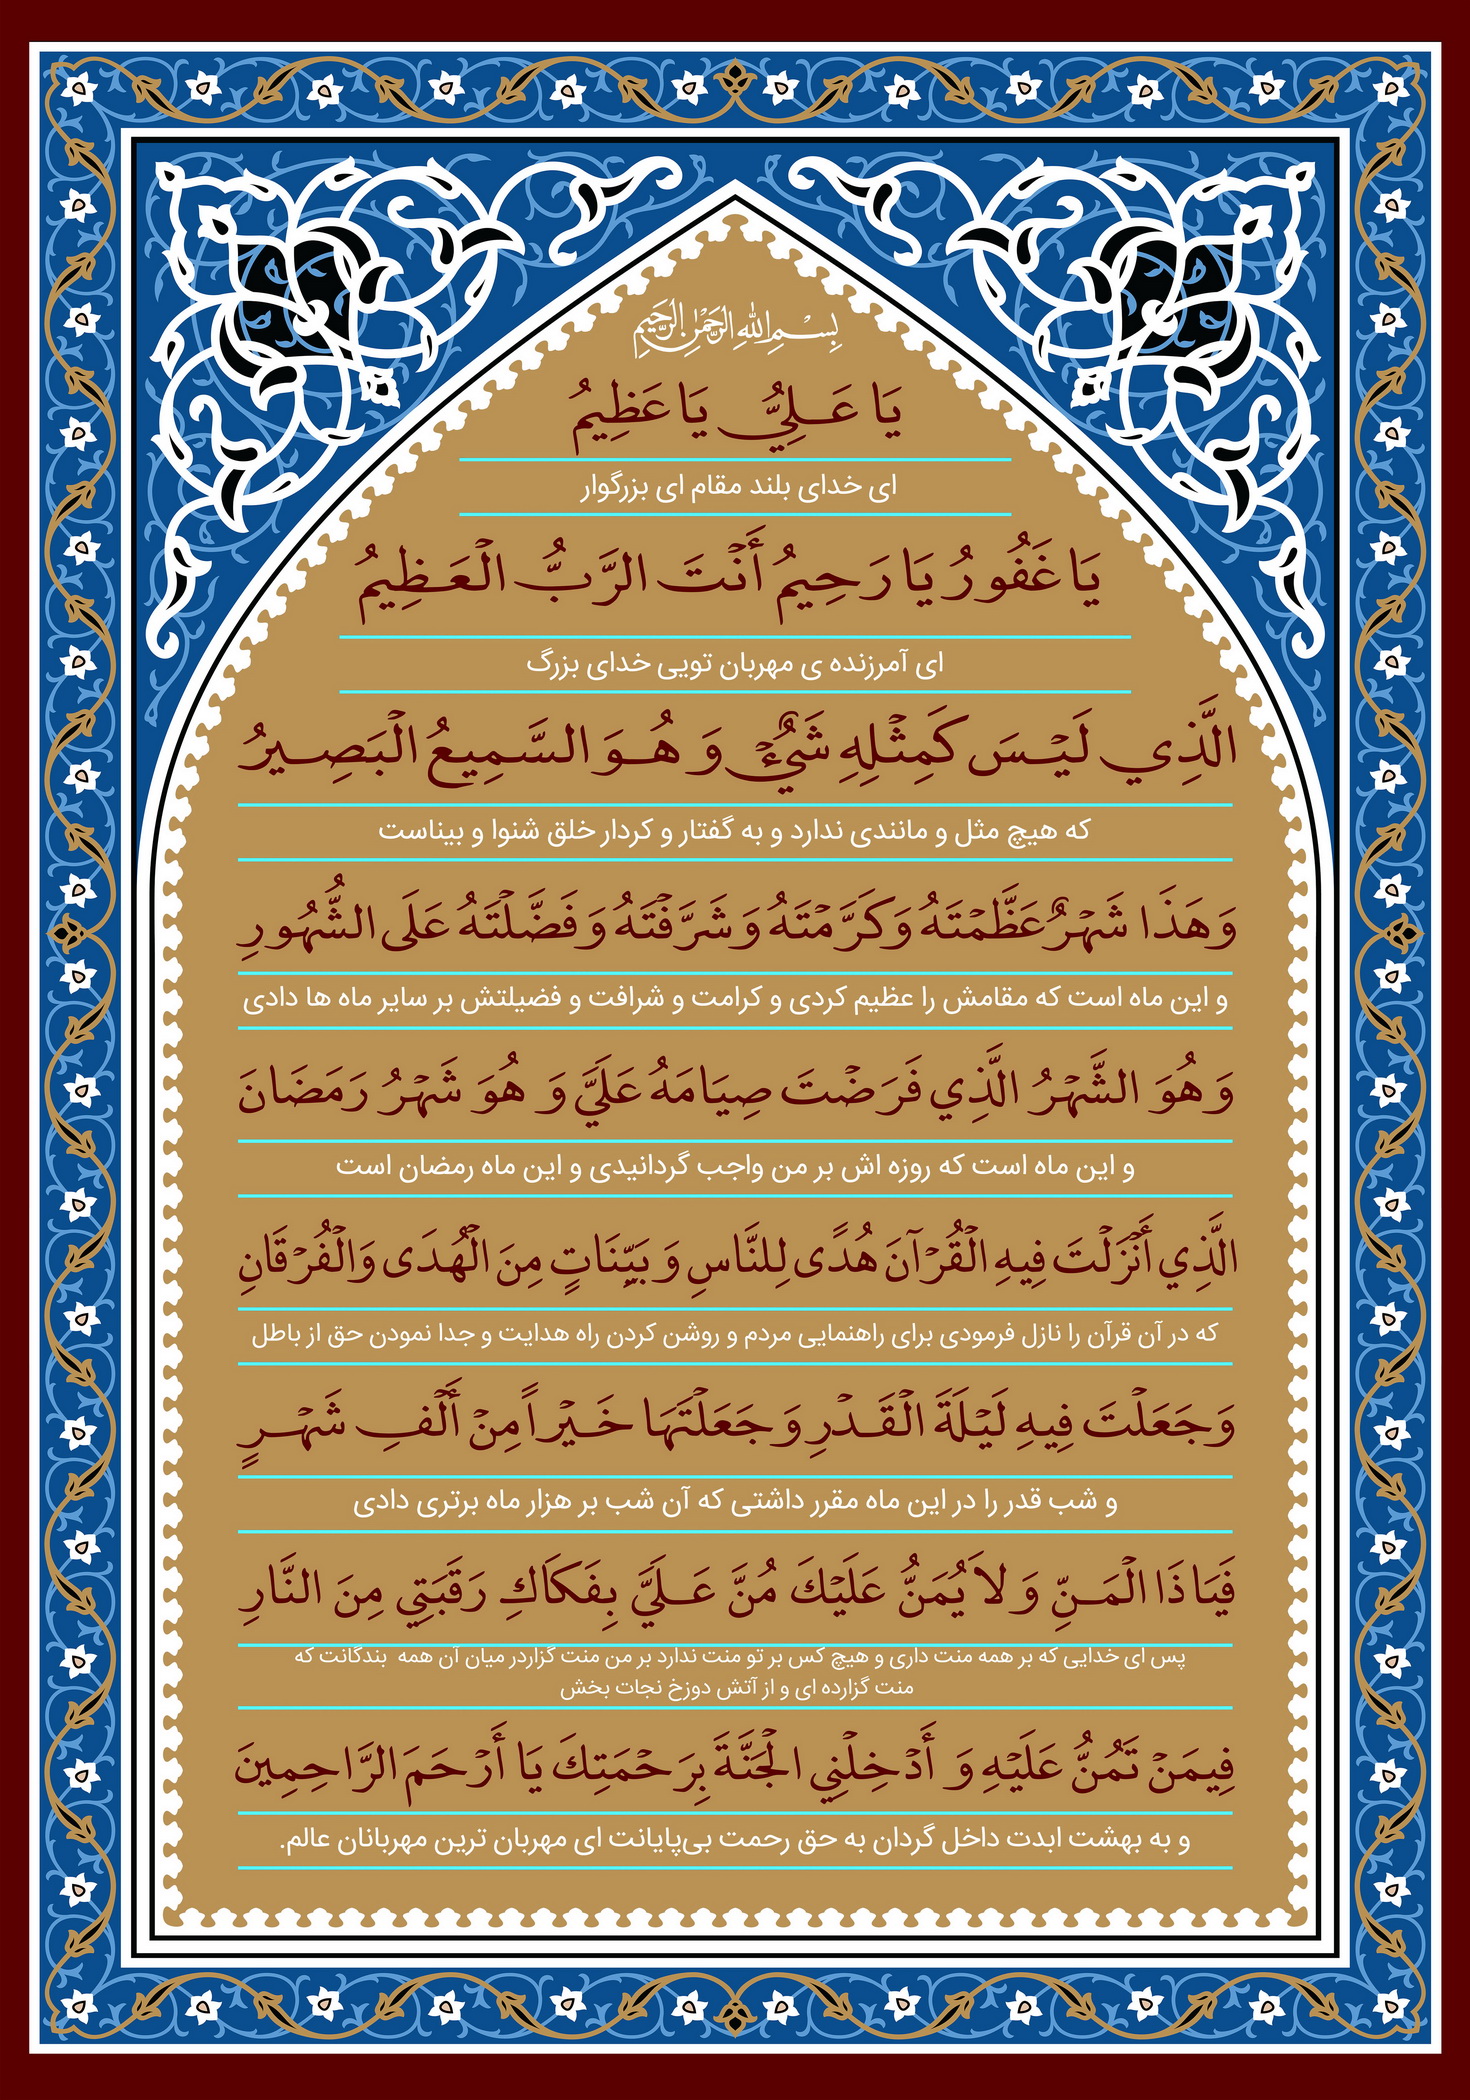 بِسْمِ اللهِ الرَّحْمٰنِ الرَّحِيمِ
يَا عَلِيُّ يَا عَظِيمُ
ای خدای بلند مقام ای بزرگوار
يَا غَفُورُ يَا رَحِيمُ أَنْتَ الرَّبُّ الْعَظِيمُ
ای آمرزنده ی مهربان تویی خدای بزرگ
الَّذِي لَيْسَ كَمِثْلِهِ شَيْءٌ وَ هُوَ السَّمِيعُ الْبَصِيرُ
که هیچ مثل و مانندی ندارد و به گفتار و کردار خلق شنوا و بیناست
وَ هَذَا شَهْرٌ عَظَّمْتَهُ وَ كَرَّمْتَهُ وَ شَرَّفْتَهُ وَ فَضَّلْتَهُ عَلَى الشُّهُورِ
و این ماه است که مقامش را عظیم کردی و کرامت و شرافت و فضیلتش بر سایر ماه ها دادی
وَ هُوَ الشَّهْرُ الَّذِي فَرَضْتَ صِيَامَهُ عَلَيَّ وَ هُوَ شَهْرُ رَمَضَانَ
و این ماه است که روزه اش بر من واجب گردانیدی و این ماه رمضان است
الَّذِي أَنْزَلْتَ فِيهِ الْقُرْآنَ هُدًى لِلنَّاسِ وَ بَيِّنَاتٍ مِنَ الْهُدَى وَالْفُرْقَانِ
که در آن قرآن را نازل فرمودی برای راهنمایی مردم و روشن کردن راه هدایت و جدا نمودن حق از باطل
وَ جَعَلْتَ فِيهِ لَيْلَةَ الْقَدْرِ وَ جَعَلْتَهَا خَيْراً مِنْ أَلْفِ شَهْرٍ
و شب قدر را در این ماه مقرر داشتی که آن شب بر هزار ماه برتری دادی
فَيَا ذَا الْمَنِّ وَ لاَ يُمَنُّ عَلَيْكَ مُنَّ عَلَيَّ بِفَكَاكِ رَقَبَتِي مِنَ النَّارِ
پس ای خدایی که بر همه منت داری و هیچ کس بر تو منت ندارد بر من منت گزاردر میان آن همه بندگانت که
منت گزارده ای و از آتش دوزخ نجات بخش
فِيمَنْ تَمُنُّ عَلَيْهِ وَ أَدْخِلْنِي الْجَنَّةَ بِرَحْمَتِكَ يَا أَرْحَمَ الرَّاحِمِينَ
و به بهشت ابدت داخل گردان به حق رحمت بی‌پایانت ای مهربان ترین مهربانان عالم.